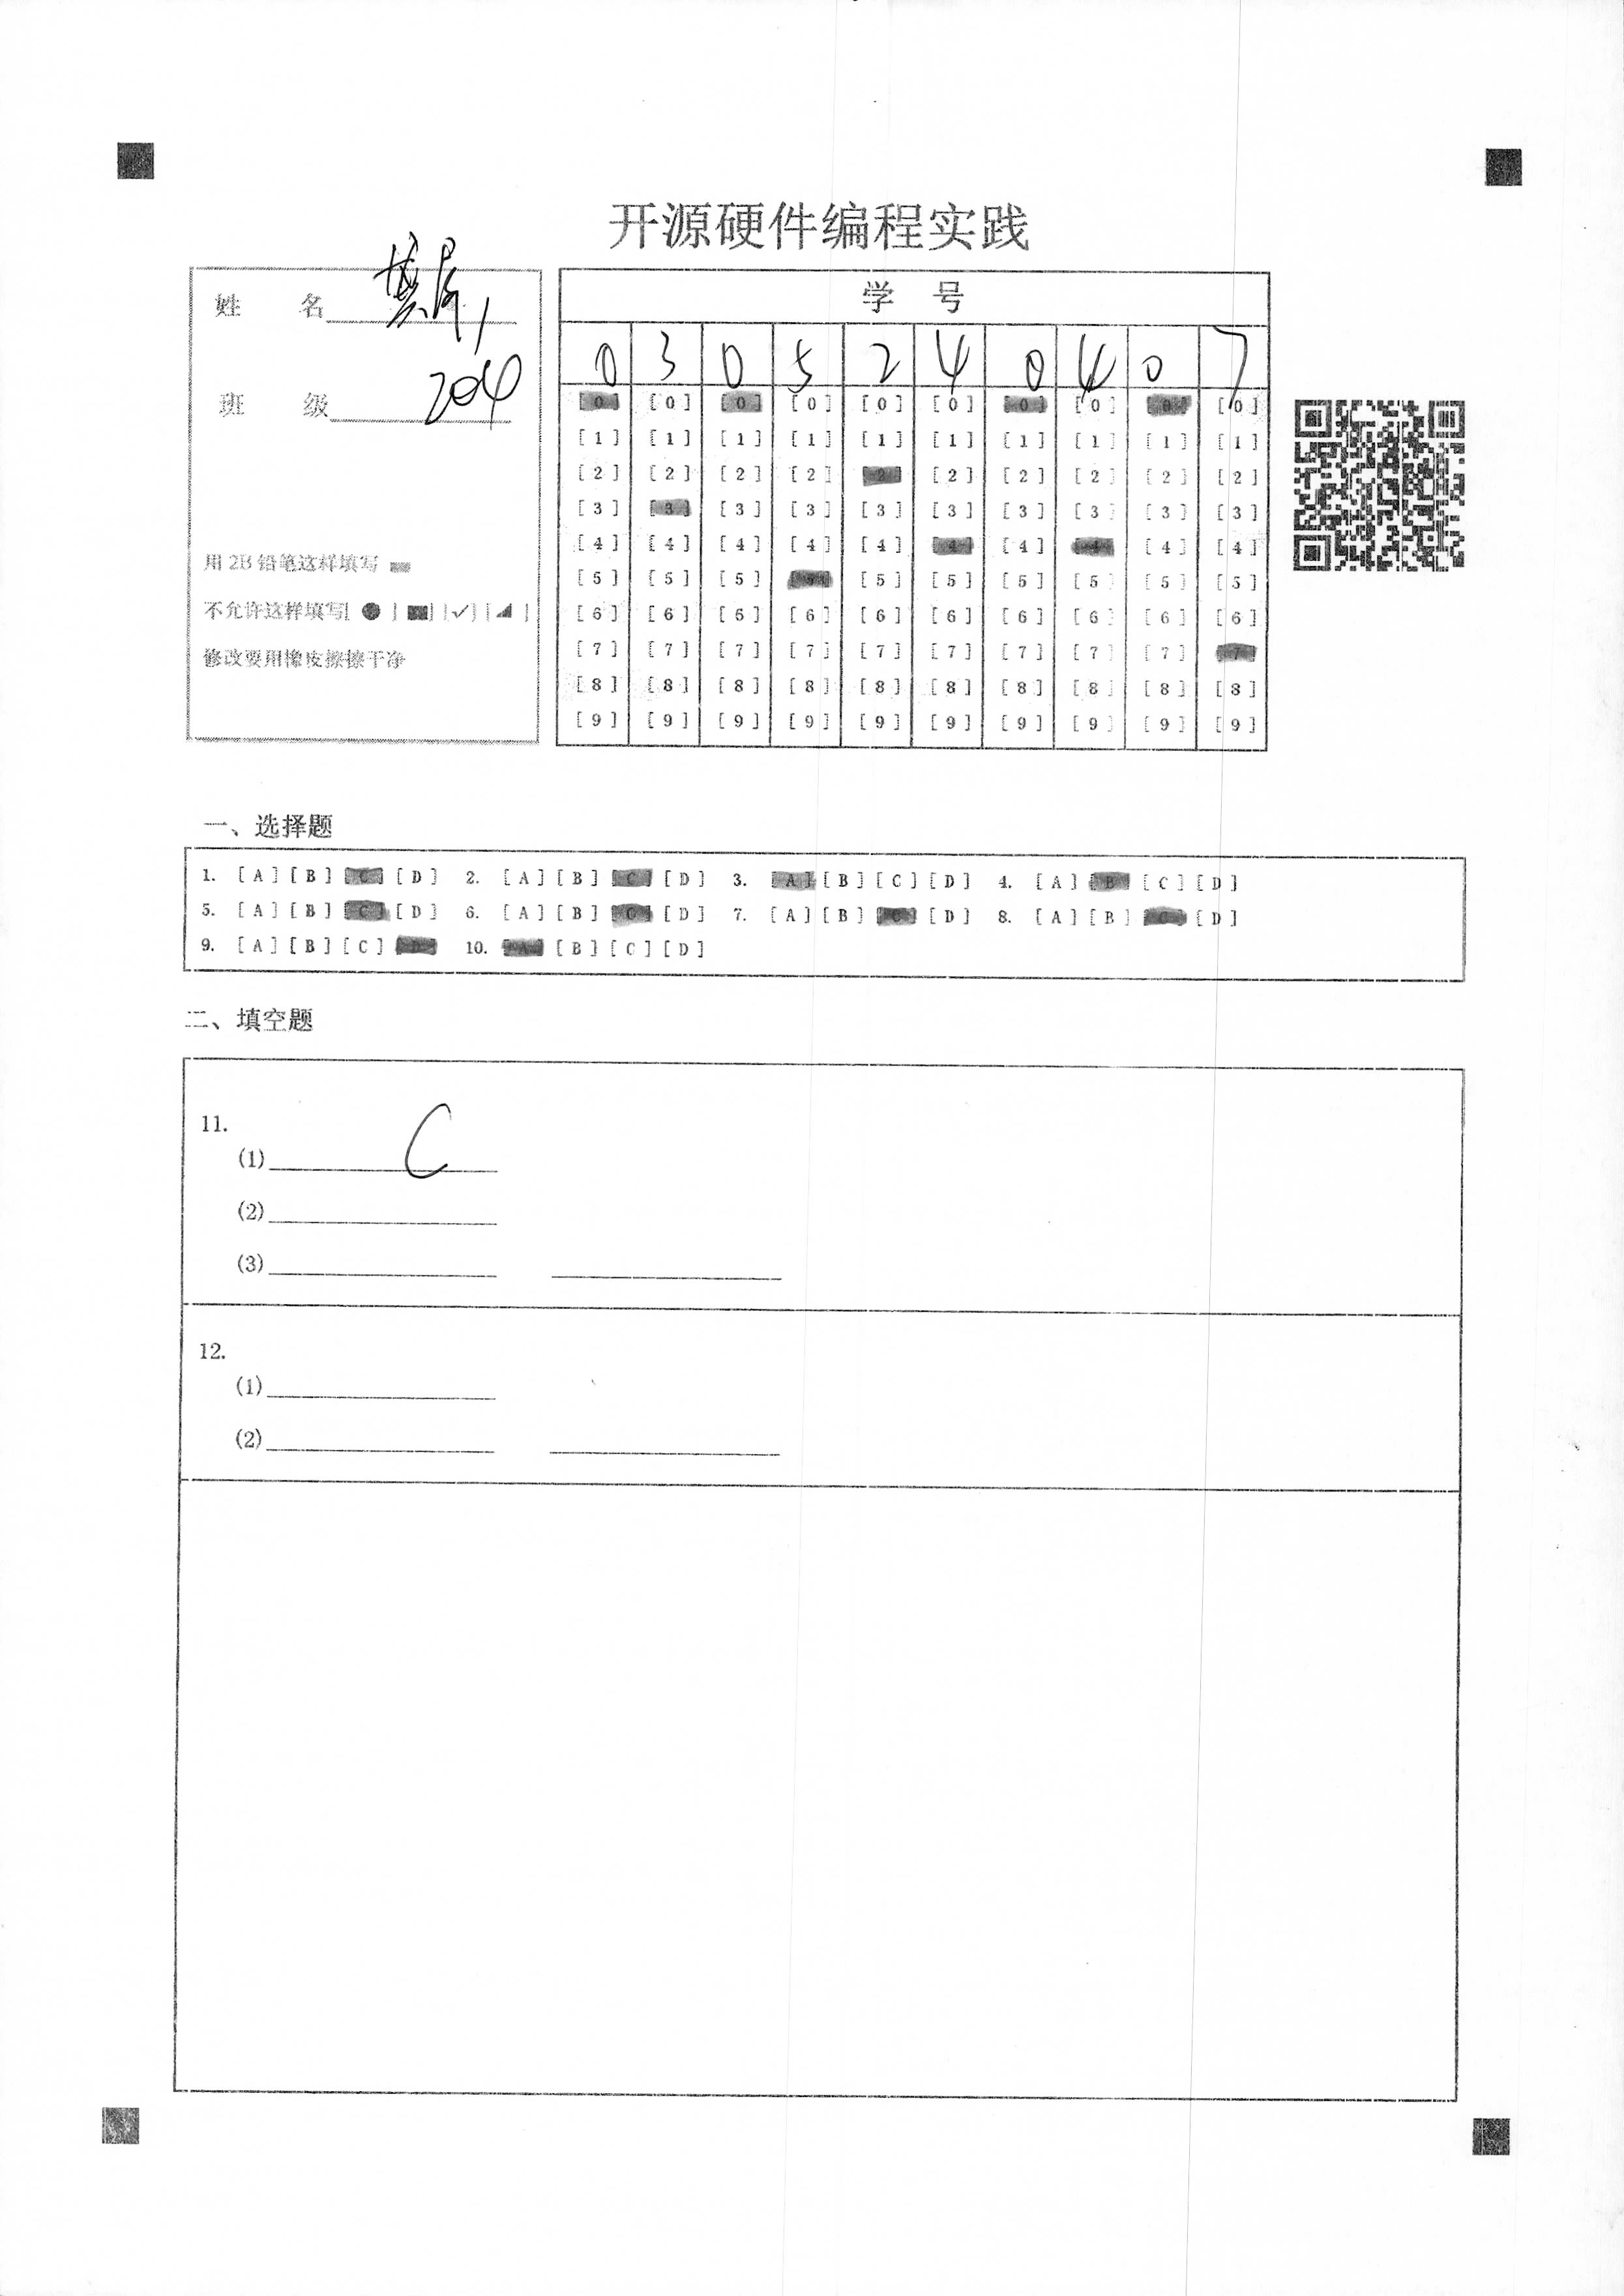 开源硬件编程实践
姓 名
班 级 204
用 2B 铅笔这样填写
不允许这样填写[ ● ] [■] [✓] [◢ ]
修改要用橡皮擦擦干净
学 号
0 3 0 5 2 4 0 4 0 7
[0] [0] [0] [0] [0] [0] [0] [0] [0] [0]
[1] [1] [1] [1] [1] [1] [1] [1] [1] [1]
[2] [2] [2] [2] [2] [2] [2] [2] [2] [2]
[3] [3] [3] [3] [3] [3] [3] [3] [3] [3]
[4] [4] [4] [4] [4] [4] [4] [4] [4] [4]
[5] [5] [5] [5] [5] [5] [5] [5] [5] [5]
[6] [6] [6] [6] [6] [6] [6] [6] [6] [6]
[7] [7] [7] [7] [7] [7] [7] [7] [7] [7]
[8] [8] [8] [8] [8] [8] [8] [8] [8] [8]
[9] [9] [9] [9] [9] [9] [9] [9] [9] [9]
一、选择题
1. [A] [B] [C] [D] 2. [A] [B] [C] [D] 3. [A] [B] [C] [D] 4. [A] [B] [C] [D]
5. [A] [B] [C] [D] 6. [A] [B] [C] [D] 7. [A] [B] [C] [D] 8. [A] [B] [C] [D]
9. [A] [B] [C] [D] 10. [A] [B] [C] [D]
二、填空题
11.
(1) C
(2)
(3)
12.
(1)
(2)